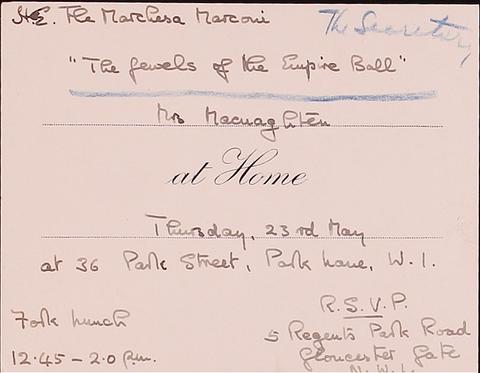 H.E. The Marchesa Marconi
The Secretary
"The Jewels of the Empire Ball"
Mrs Macnaghten
at Home
Thursday, 23rd May
at 36 Park Street, Park Lane, W.1.
R.S.V.P.
Fork Lunch
5 Regents Park Road
12.45 - 2.0 p.m.
Gloucester Gate
N.W.1.